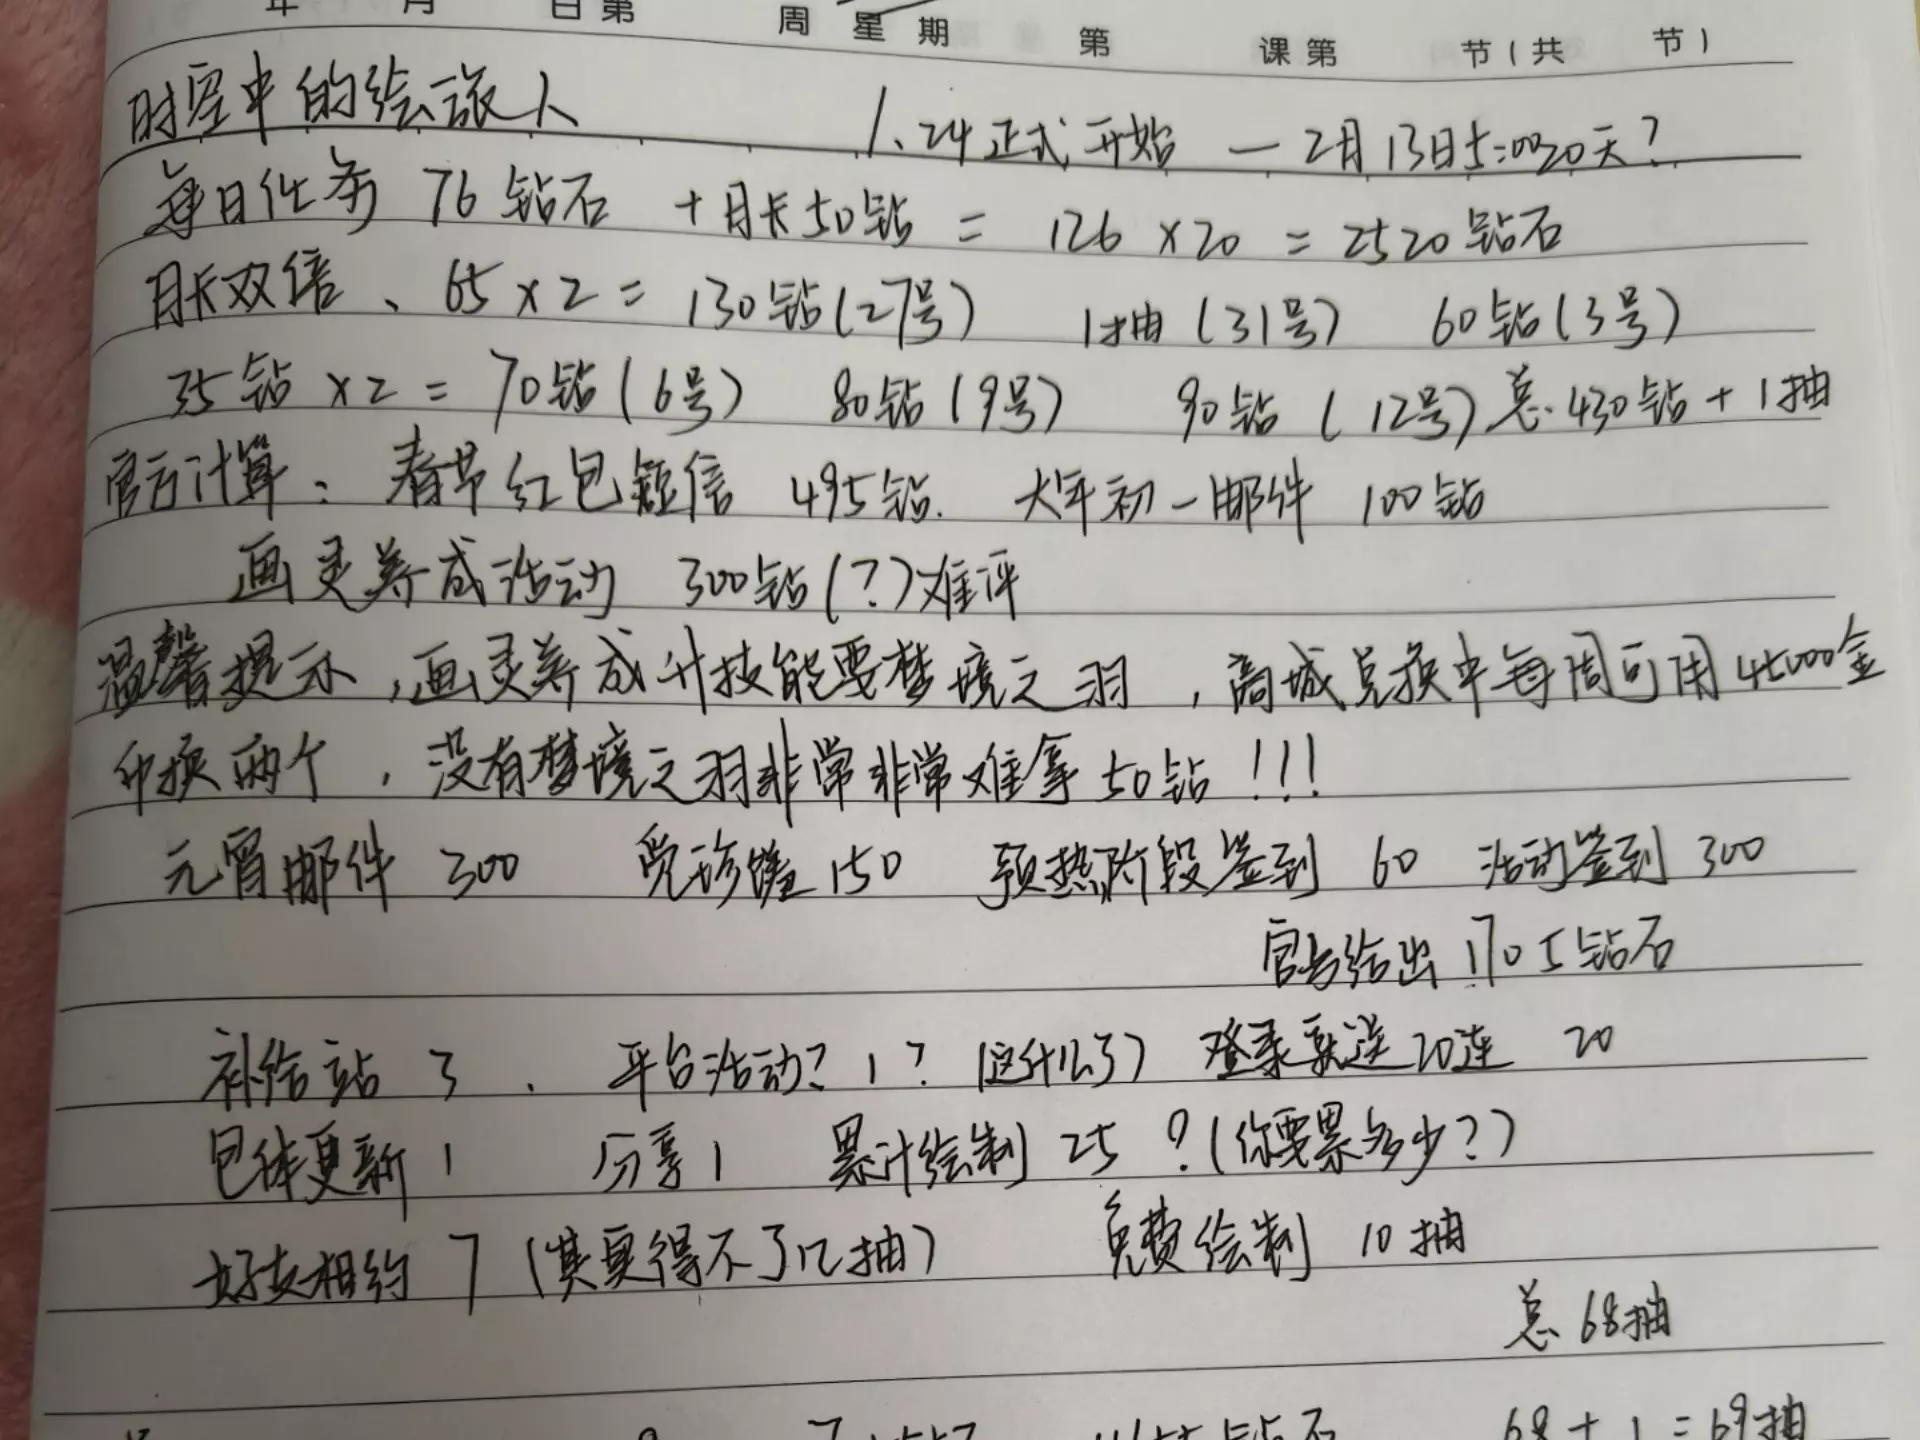 年 月 日 第 周 星 期 第 课 第 节(共 节)
时空中的绘旅人 1.24正式开始 — 2月13日5:00 20天?
每日任务 76钻石 + 月卡50钻 = 126 × 20 = 2520钻石
月卡双倍、65 × 2 = 130钻(27号) 1抽(31号) 60钻(3号)
35钻 × 2 = 70钻(6号) 80钻(9号) 90钻(12号) 总.430钻 + 1抽
官方计算: 春节红包短信 495钻. 大年初一邮件 100钻
画灵养成活动 300钻(?)难评
温馨提示,画灵养成升技能要梦境之羽,商城兑换中每周可用45000金
币换两个,没有梦境之羽非常非常难拿50钻!!!
元宵邮件 300 兑珍馐150 预热阶段签到 60 活动签到 300
官方给出1705钻石
补给站 3 、 平台活动? 1? (这什么了) 登录就送20连 20
包体更新 1 分享1 累计绘制 25 ?(你要累多少?)
好友相约 7 (其实得不了几抽) 免费绘制 10抽
总 68抽
68 + 1 = 69抽